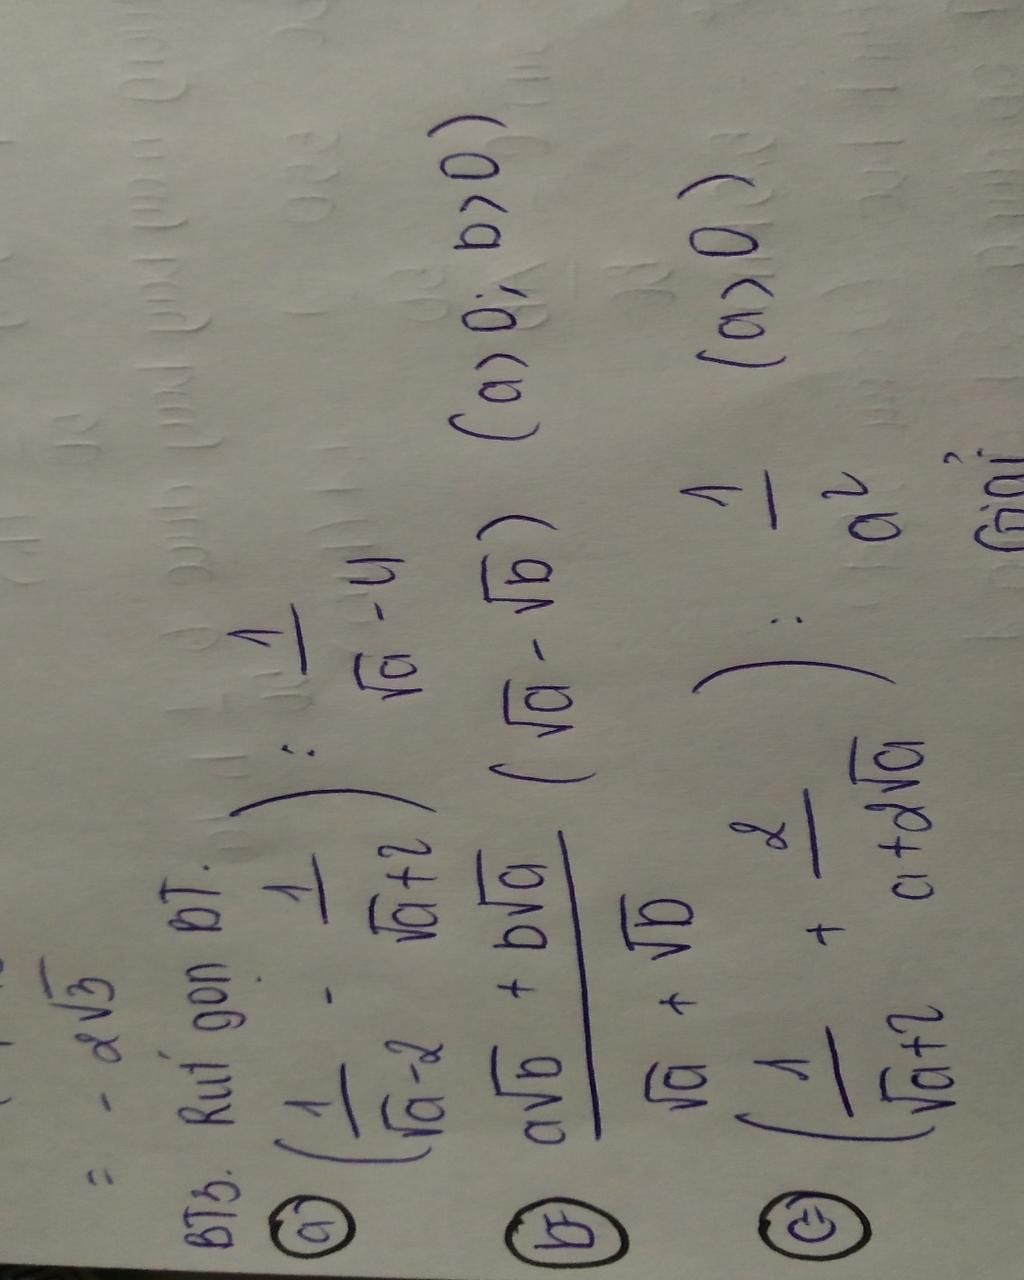 = - 2√3
BT3. Rút gọn BT.
a) (1/(√a-2) - 1/(√a+2)) : 1/(√a-4)
b) (a√b + b√a)/(√a + √b) (√a - √b) (a>0; b>0)
c) (1/(√a+2) + 2/(a+2√a)) : 1/a² (a>0)
Giải